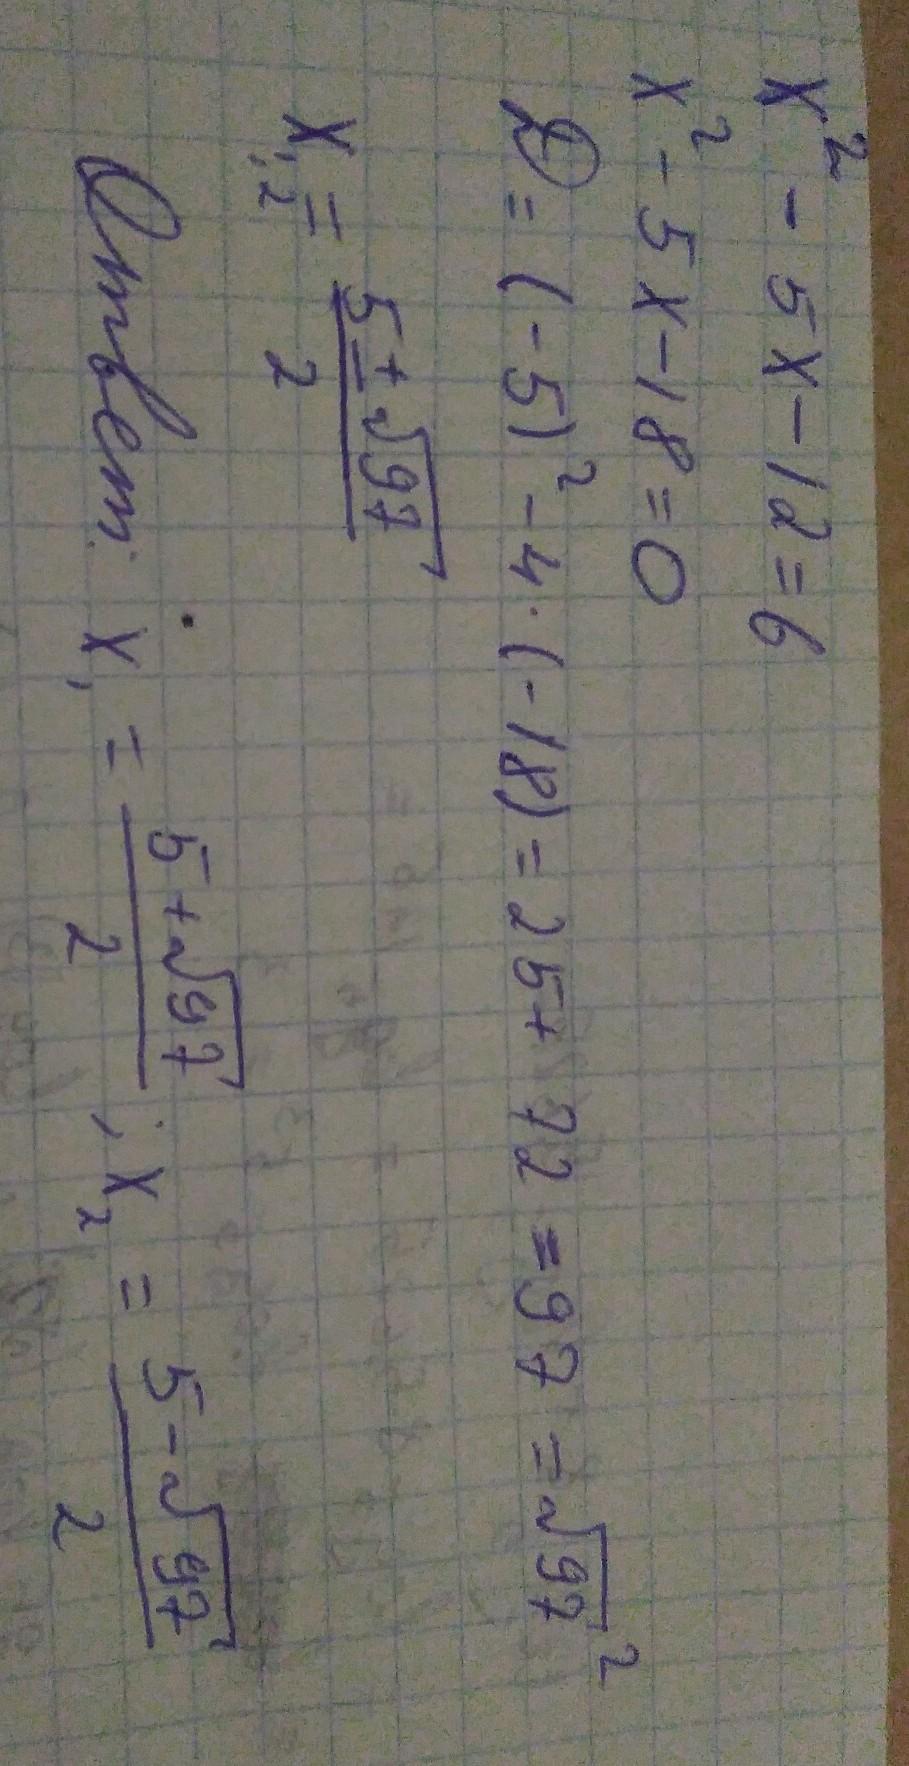 x² - 5x - 12 = 6
x² - 5x - 18 = 0
D = (-5)² - 4·(-18) = 25 + 72 = 97 = √97²
x₁,₂ = (5 ± √97)/2
Ответ: x₁ = (5 + √97)/2 ; x₂ = (5 - √97)/2